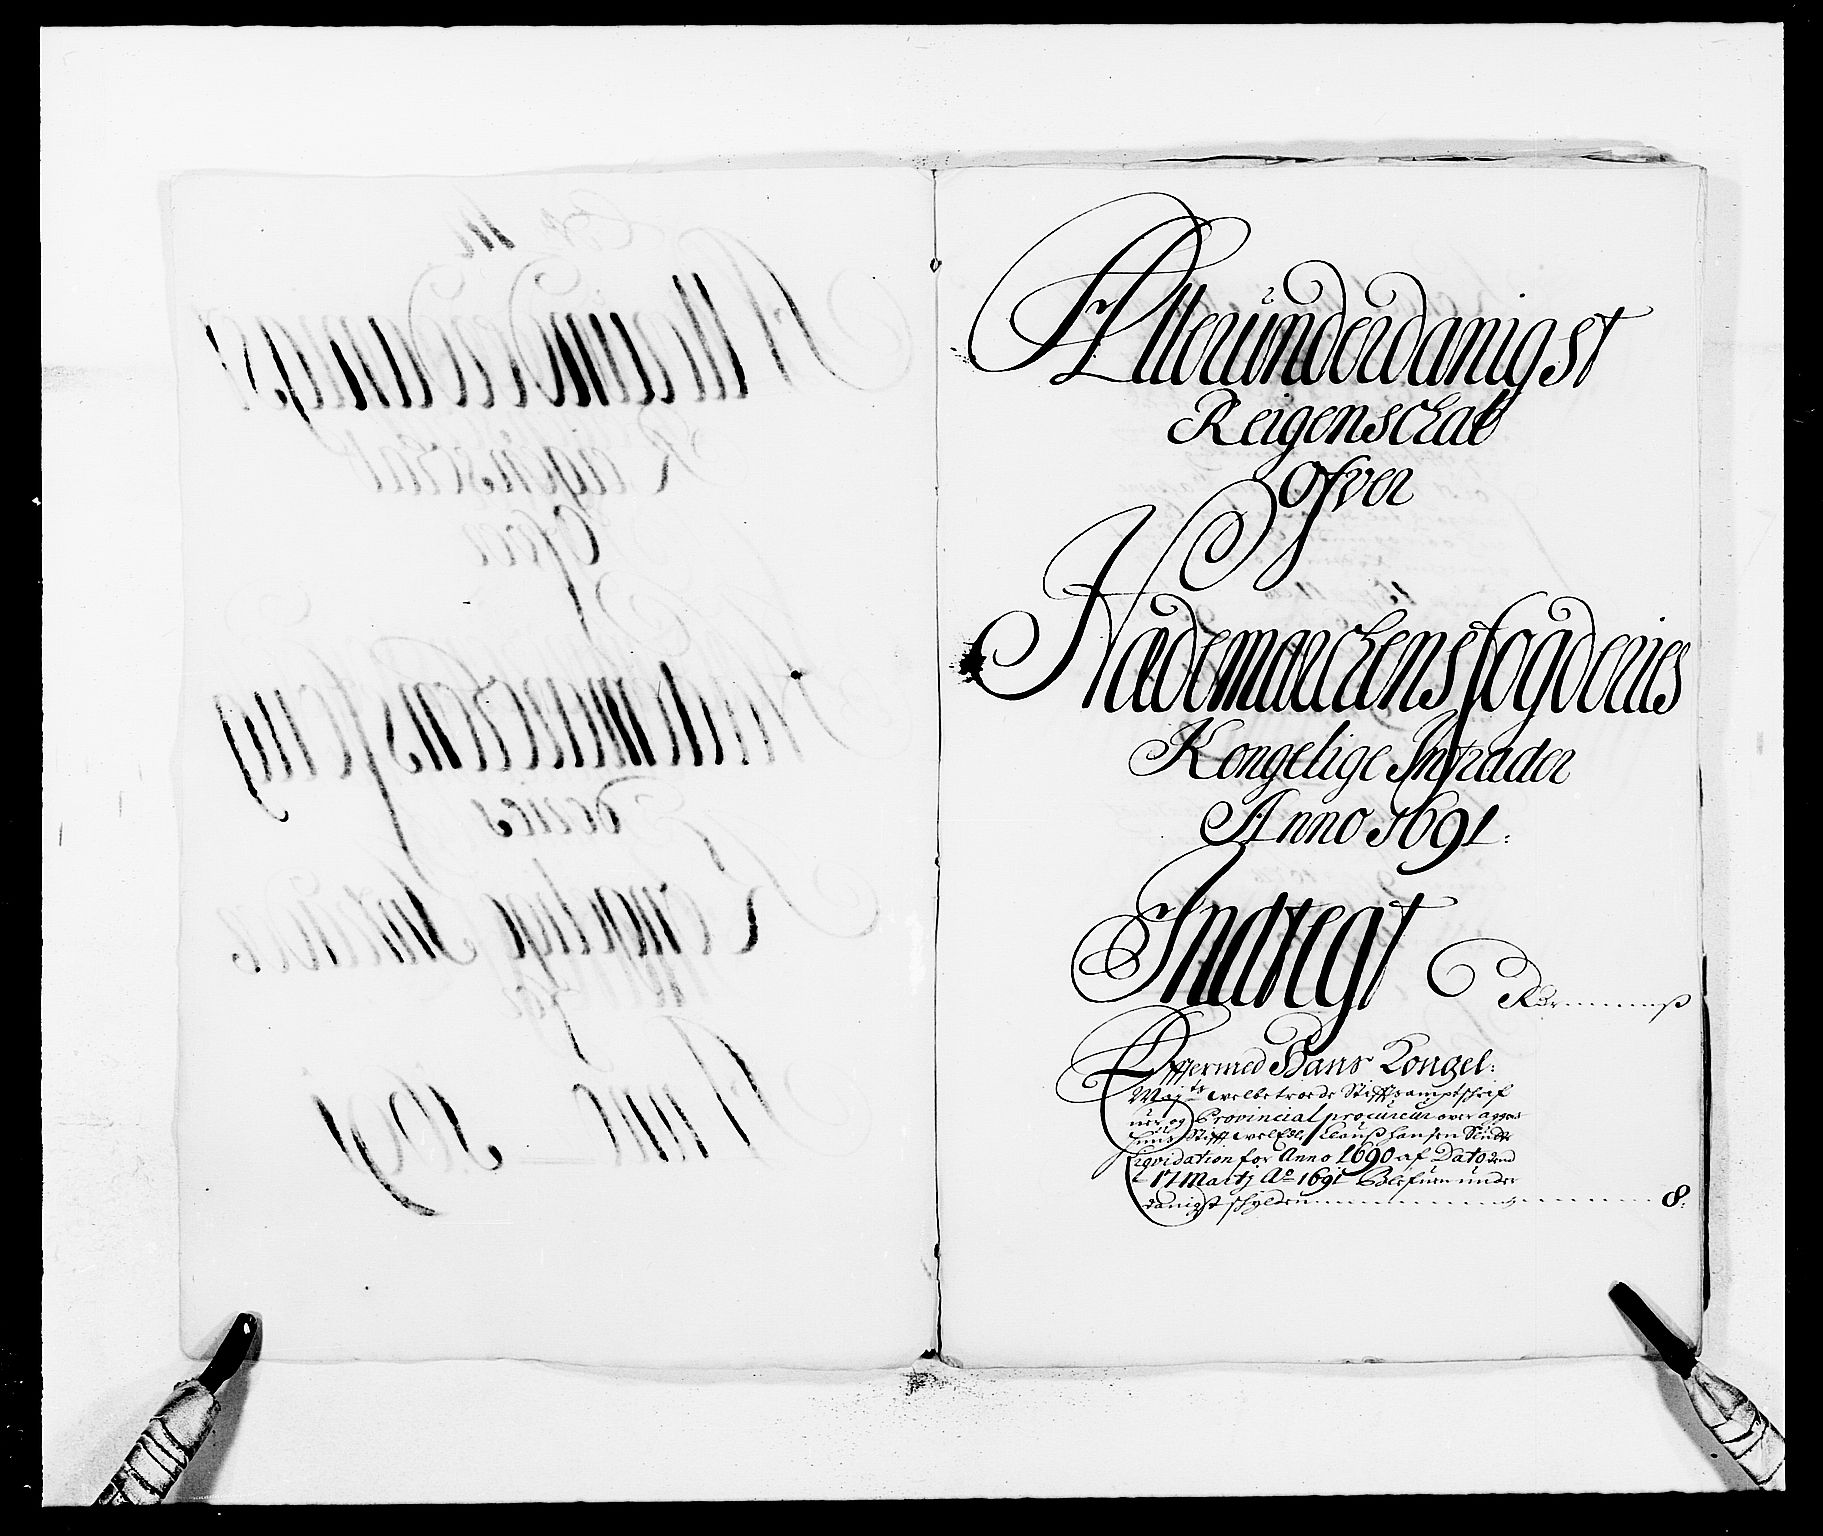 Allerunderdanigst
Reigenschab
Ofver
Hademarchens fogderies
Kongelige Intrader
Anno 1691:
Indtegt
Efftermed Hans Kongel:
May:ts welbetroede Stifftsamptschrif
uer og Provincial procureur over Agger
huus Stifft welEdle Clauß hansen
Liqvidation for Anno 1690 af Dato
17 Martj Ao 1691 under
danigst schylden 8: